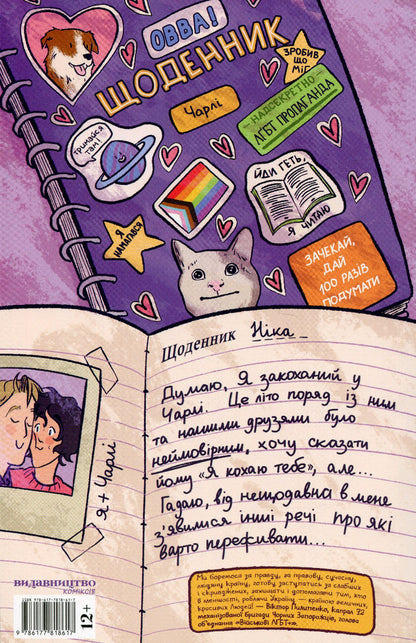 ОВВА!
ЩОДЕННИК
Чарлі
ЗРОБИВ
ЩО
МІГ
НАДСЕКРЕТНО
ЛҐБТ ПРОПАГАНДА
тримайся
там!
Я
НАМАГАВСЯ
ЙДИ ГЕТЬ,
Я ЧИТАЮ
ЗАЧЕКАЙ,
ДАЙ
100 РАЗІВ
ПОДУМАТИ
Щоденник Ніка
Думаю, я закоханий у
Чарлі. Це літо поряд із ним
та нашими друзями було
неймовірним, хочу сказати
йому «Я кохаю тебе», але...
Гадаю, від нещодавна в мене
з'явилися інші речі про які
варто перейматися...
я + Чарлі
Ми боремося за правду, за правову, сучасну,
людяну країну, готову заступитись за слабших
і скривджених, захищати і допомагати тим, хто
в меншості, роблячи Україну — країною величних,
красивих людей! — Віктор Пилипенко, капрал 72
механізованої бригади Чорних Запорожців, голова
об'єднання «Військові ЛГБТ+».
ВИДАВНИЦТВО
КОМІКСІВ
12+
ISBN 978-617-7818-61-7
9 786177 818617